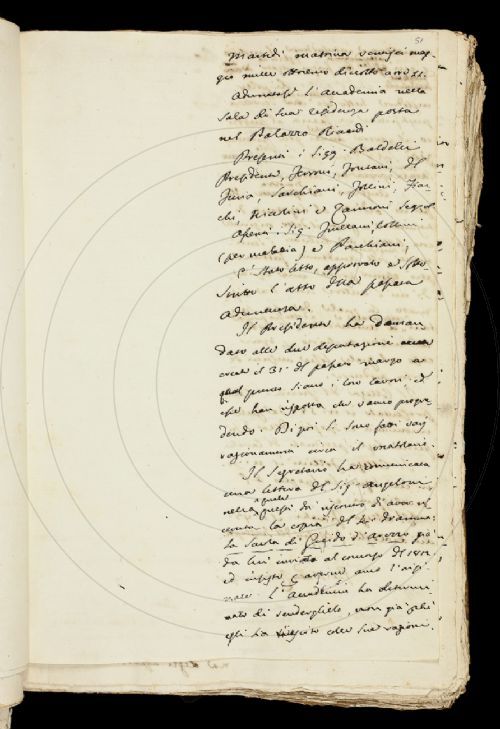 51
Martedì mattina ventisei mag-
gio mille ottocento diciotto a ore 11.
Adunatasi l'Accademia nella
Sala di sua residenza posta
nel Palazzo Ricardi
Presenti i Sigg. Baldelli
Presidente, Ferroni, Fontani, del
Furia, Sarchiani, Follini, Fiac-
chi, Niccolini e Zannoni Segret.
Assenti i Sig.
(per malattia) e Pacchiani,
È stato letto, approvato e sotto-
scritto l'atto della passata
adunanza.
Il Presidente ha doman-
dato alle due deputazioni
create il 31 del passato marzo a
qual punto siano i loro lavori, ed
esse han risposto che vanno progre-
dendo. Di poi si sono fatti varj
ragionamenti circa il
Il Segretario ha comunicata
una lettera del Sig. Angeloni
nella quale questi dà riscontro di aver ri-
cevuta la copia del
la Scuola di Guido d'Arezzo già
da lui inviata al concorso del 1812
ed insiste
L'Accademia ha determi-
nato di renderglielo,
egli ha sue ragioni.